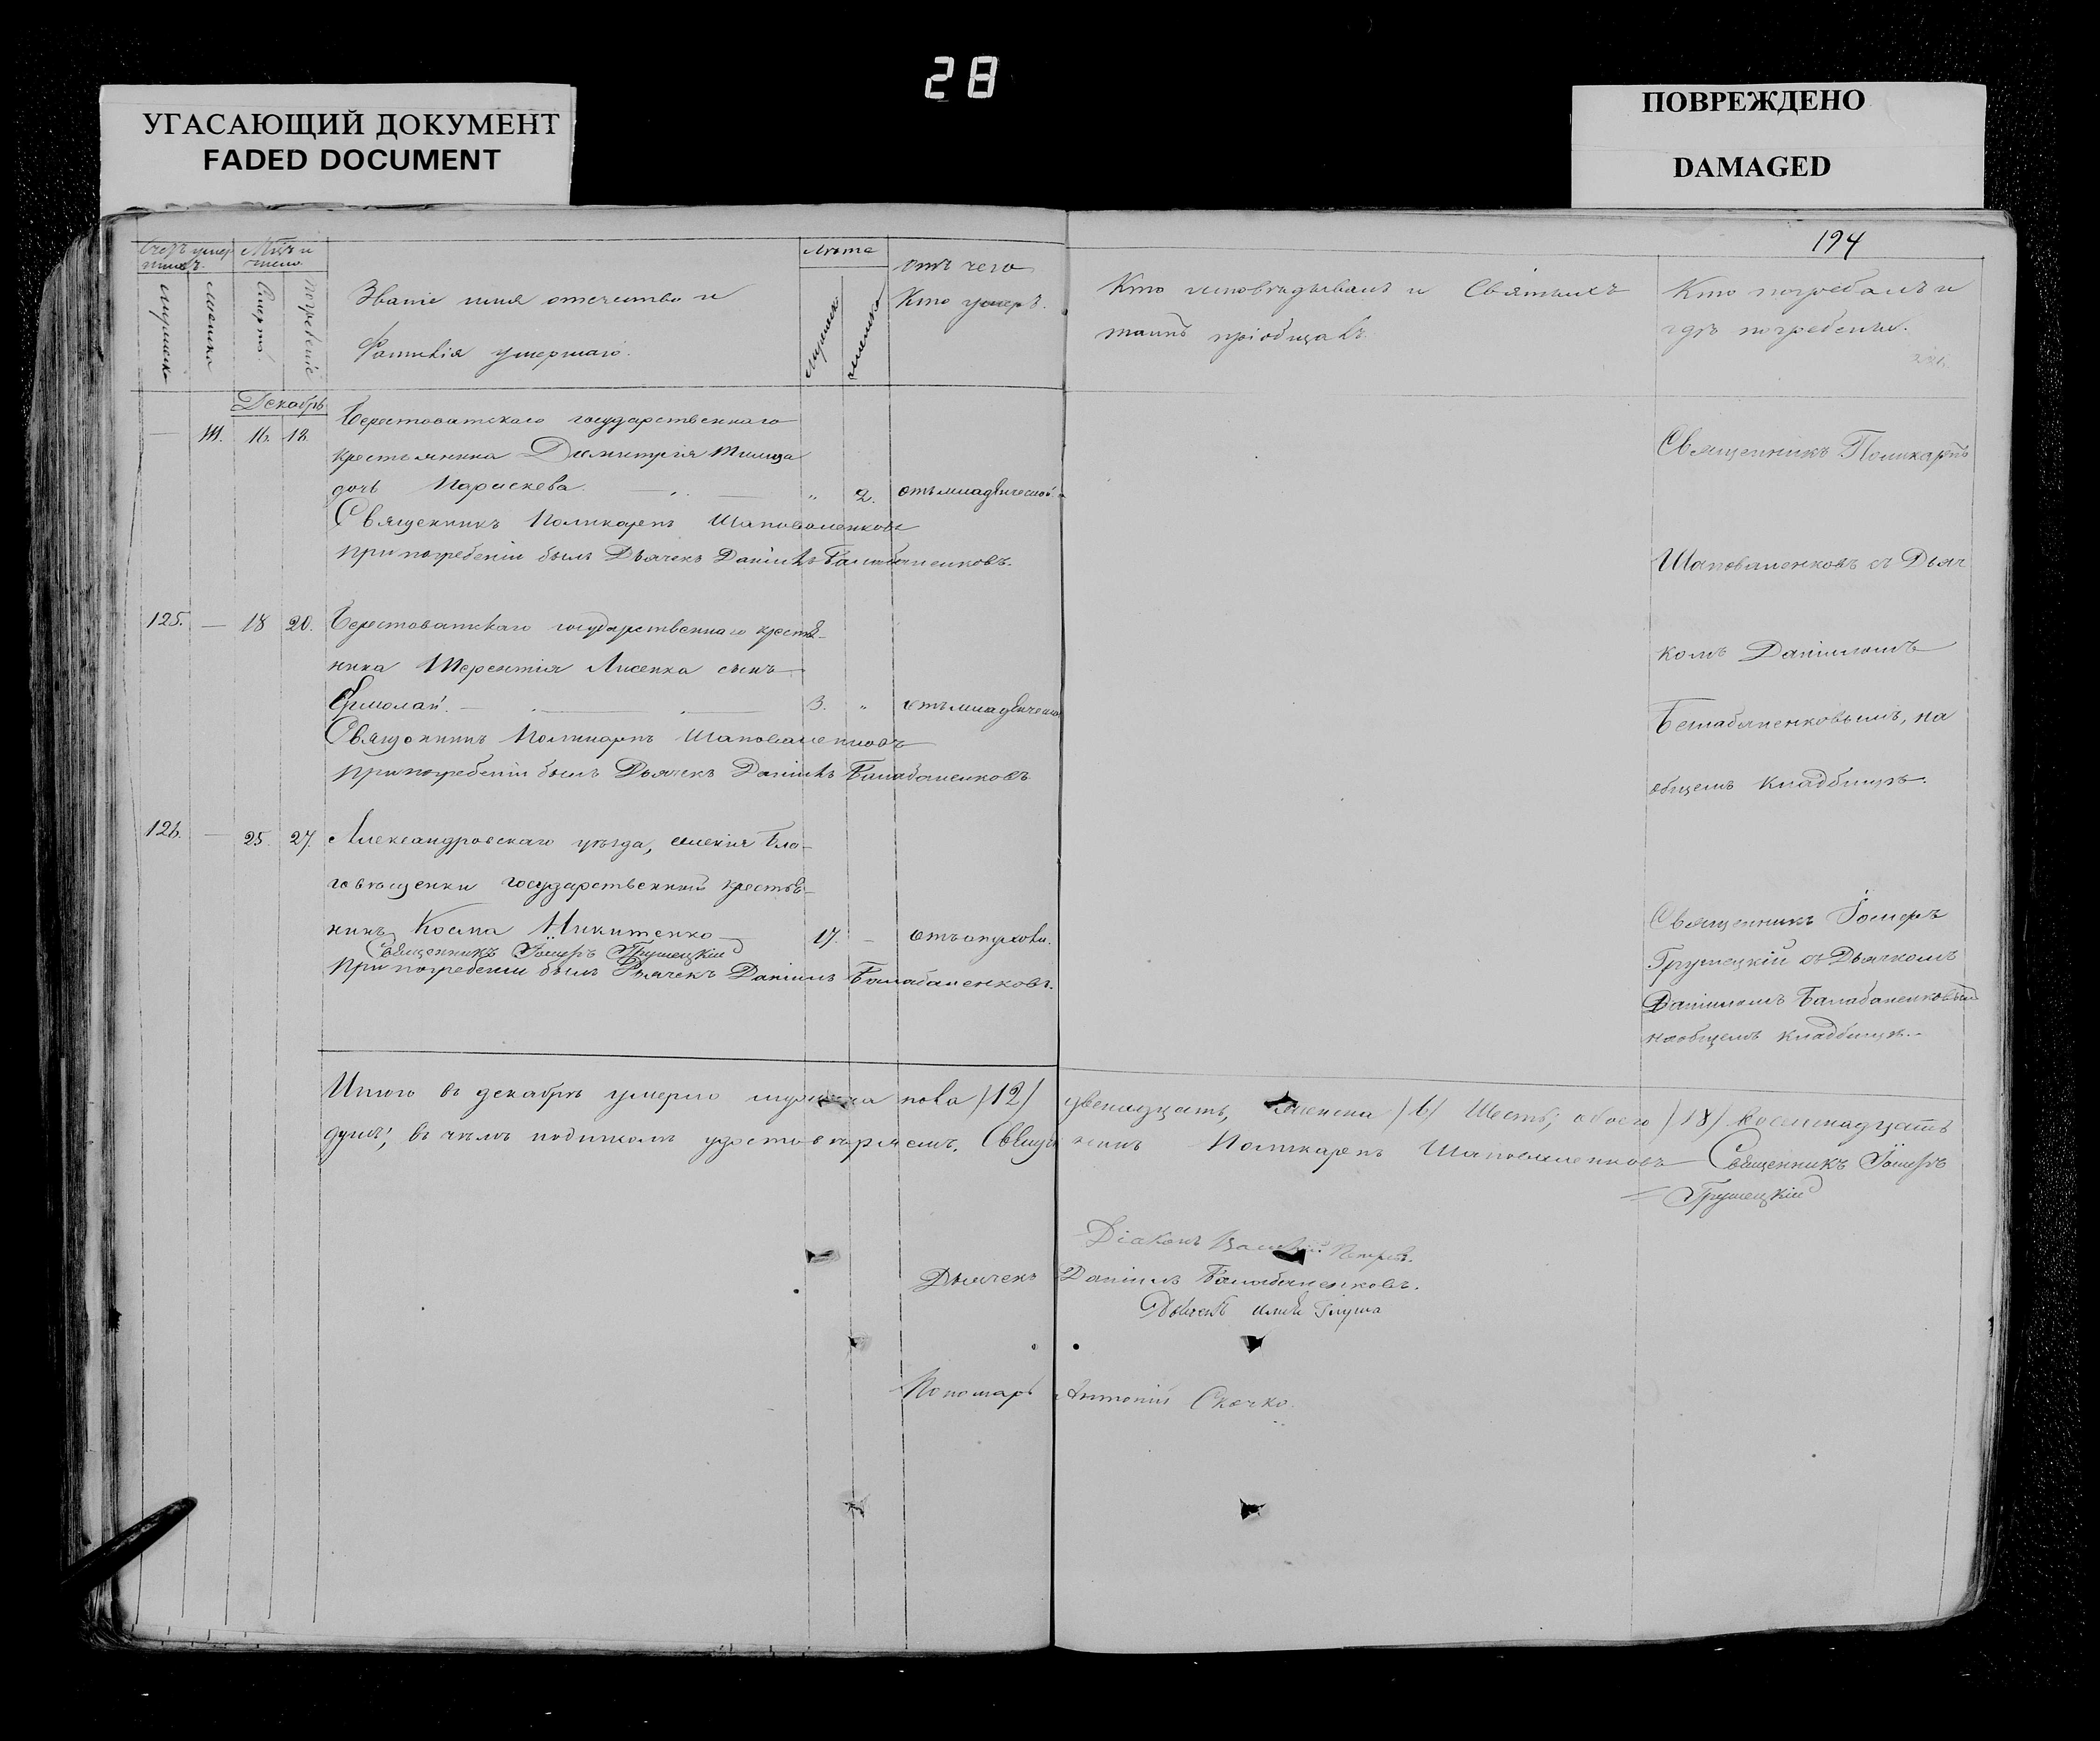 28
УГАСАЮЩИЙ ДОКУМЕНТ
FADED DOCUMENT
ПОВРЕЖДЕНО
DAMAGED
194
Счетъ умер
шихъ.
Мужеска
Женска
Мѣсяцъ и
число
Смерти.
погребенія
Званіе имя отечество и
Фамилія умершаго.
Лѣта
Мужеска
женска
отъ чего
Кто умеръ.
Кто исповѣдывалъ и Святыхъ
таинъ пріобщалъ.
Кто погребалъ и
гдѣ погребены.
Декабрь
— 111. 16. 18. Берестоватскаго государственнаго
крестьянина Димитрія
дочь Параскева. — „ 2. отъ младенческой.
Священникъ Поликарпъ Шаповаленковъ
при погребеніи былъ Дьячекъ Даніилъ Балабаненковъ.
Священникъ Поликарпъ
Шаповаленковъ съ Дьяч
комъ Даніиломъ
Балабаненковымъ, на
общемъ кладбищѣ.
125. — 18 20. Берестоватскаго государственнаго крестья-
нина Терентія Лисенка сынъ
Ермолай. — 3. „ отъ младенческой
Священникъ Поликарпъ Шаповаленковъ
при погребеніи былъ Дьячекъ Даніилъ Балабаненковъ
126. — 25. 27. Александровскаго уѣзда, селенія Бла-
говѣщенки государственный крестья-
нинъ Косма Никитенко — 17. — отъ опухоли.
Священникъ Іосифъ Грушецкій
При погребеніи былъ Дьячекъ Даніилъ Балабаненковъ.
Священникъ Іосифъ
Грушецкій съ Дьячкомъ
Даніиломъ Балабаненковым
на общемъ кладбищѣ.
Итого въ декабрѣ умерло мужеска пола /12/ двенадцать, женска /6/ Шесть; обоего /18/ восемнадцать
душъ; въ чемъ подписомъ удостовѣряемъ. Священникъ Поликарпъ Шаповаленковъ Священникъ Іосифъ
Грушецкій
Діаконъ Василій Петров.
Дьячекъ Даніилъ Балабаненковъ.
Дьячекъ
Пономарь Антоній Скочко.